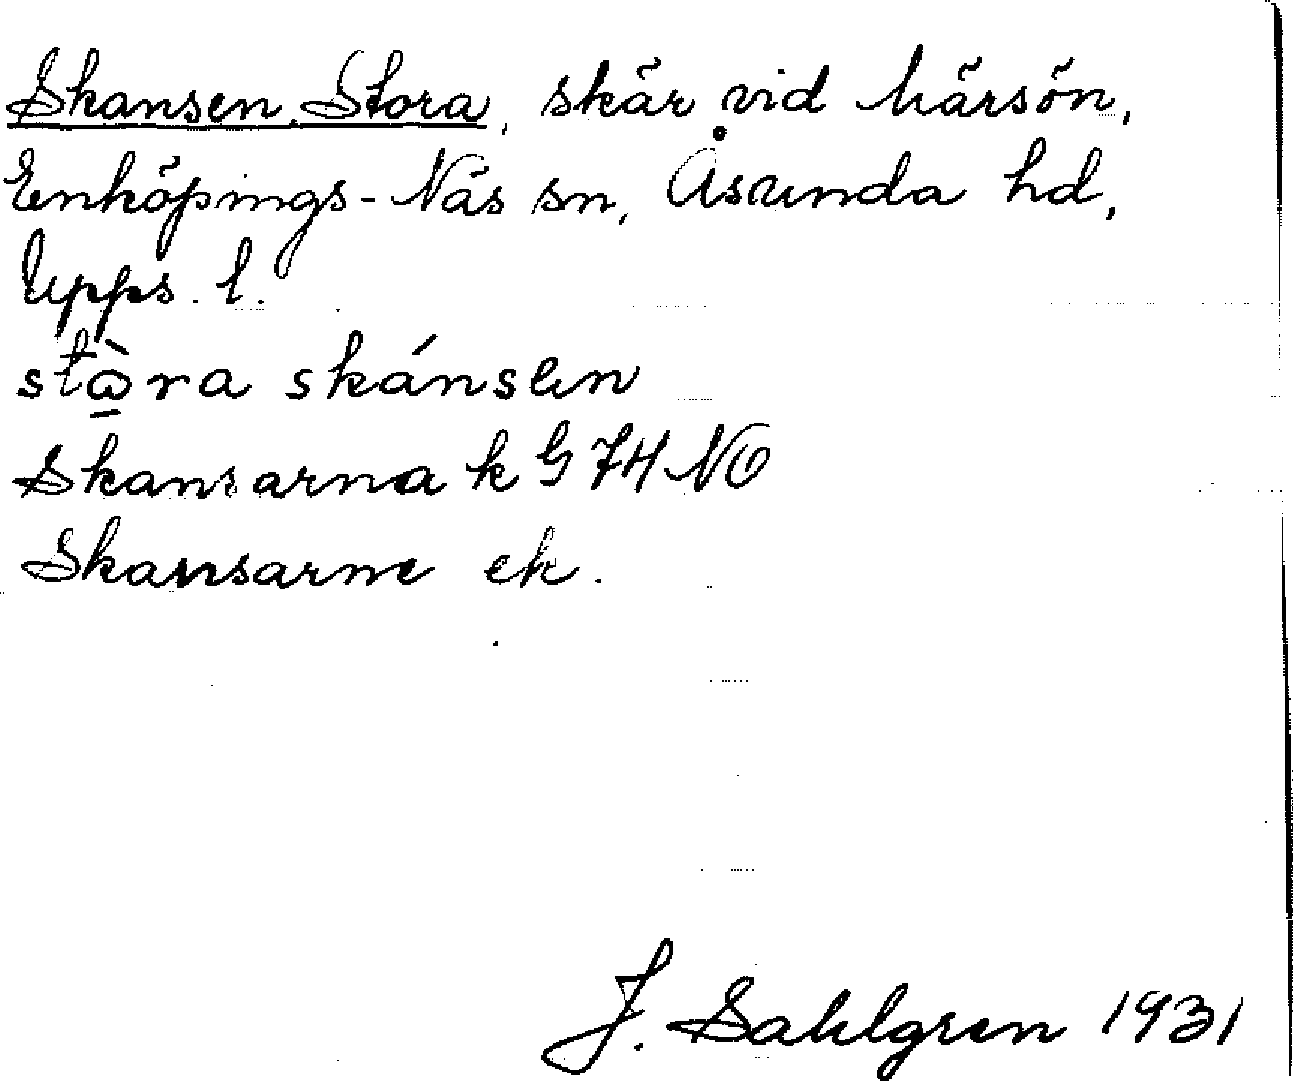 Skansen, Stora, skär vid Härsön,
Enköpings-Näs sn, Åsunda hd,
Upps. l.
stὼ̠ra skánsen
Skansarna k G 74 NO
Skansarne ek.
J. Sahlgren 1931